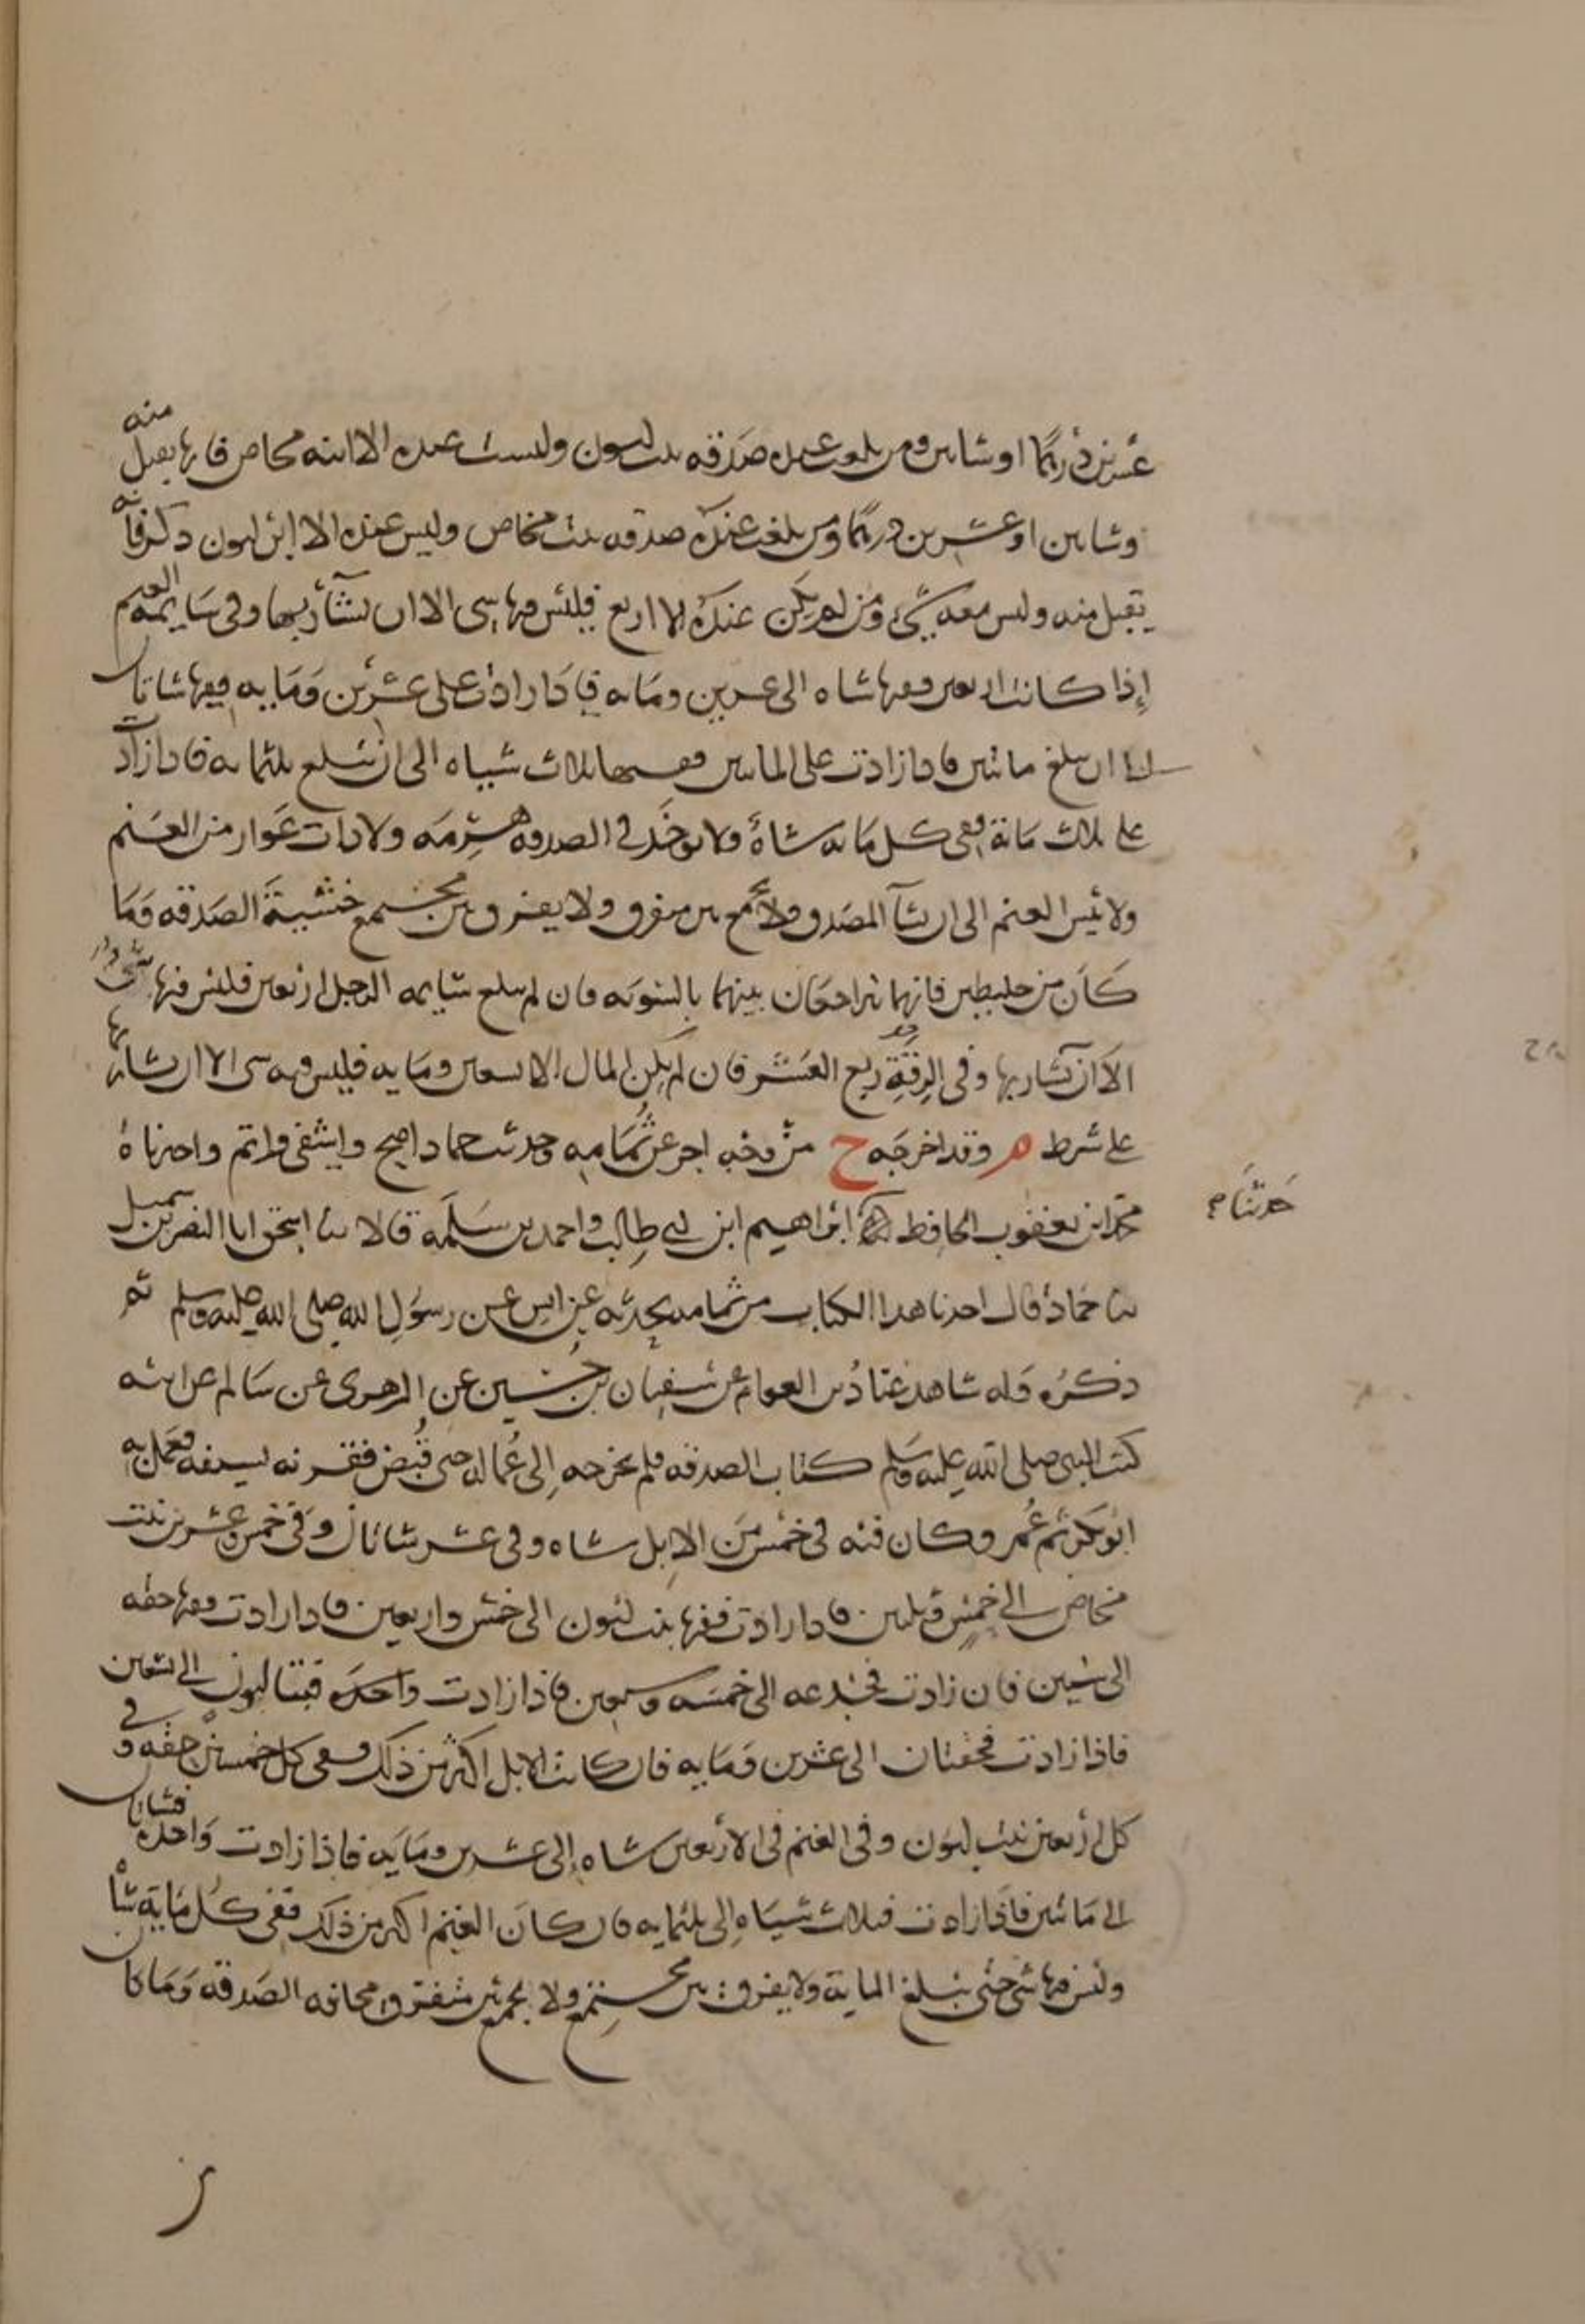 عشرين درهما او شاتين ومن بلغت عنده صدقه بنت لبون وليست عنده الا ابنه مخاض فانها يقبل منه
وشاتين او عشرين درهما ومن بلغت عنده صدقه بنت مخاض وليس عنده الا ابن لبون ذكر فانه
يقبل منه وليس معه شيء ومن لم يكن عنده الا اربع فليس فيها شي الا ان يشأ ربها وفي سايمه الغنم
إذا كانت اربعين ففيها شاه الى عشرين ومايه فاذا زادت على عشرين ومايه ففيها شاتان
الى ان يبلغ مائتين فاذا زادت على المايتين ففيها ثلاث شياه الى ان تبلغ ثلثمايه فاذا زادت
على ثلاث مائة ففي كل مايه شاة ولا يوخذ في الصدقه هرمه ولا ذات عوار من الغنم
ولا تيس الغنم الى ان يشآ المصدق ولا يجمع بين متفرق ولا يفرق بين مجتمع خشية الصدقه وما
كان من خليطين فانهما يتراجعان بينهما بالسويه فان لم يبلغ سايمه الرجل اربعين فليس فيها شيء
الا ان يشأ ربها وفي الرقة ربع العشر فان لم يكن المال الا تسعين ومايه فليس فيه شي الا ان يشا ربها
على شرط م وقد اخرجه خ من وجه اخر عن ثمامه وحديث حماد اصح واشفى واتم واخبرناه
محمد ابن يعقوب الحافظ ابراهيم ابن ابي طالب واحمد بن سلمة قالا ثنا اسحق انا النضر بن شميل
حدثنا م
ثنا حماد قال اخذنا هذا الكتاب من ثمامه يحدثه عن انس عن رسول الله صلى الله عليه وسلم ثم
ذكره وله شاهد عباد بن العوام عن سفيان بن حسين عن الزهري عن سالم عن ابيه
كتب النبي صلى الله عليه وسلم كتاب الصدقه فلم يخرجه إلى عماله حتى قبض فقرنه بسيفه فعمل به
ابو بكر ثم عمر وكان فيه في خمس من الإبل شاه وفي عشر شاتان وفي خمس وعشرين بنت
مخاض الى خمس وثلثين فاذا زادت ففيها بنت لبون الى خمس واربعين فاذا زادت ففيها حقه
الى ستين فان زادت فجذعه الى خمسه وسبعين فاذا زادت واحده فبنتا لبون الى تسعين
فاذا زادت فحقتان الى عشرين ومايه فان كانت الابل اكثر من ذلك ففي كل خمسين حقه وفي
كل أربعين بنت لبون وفي الغنم في الاربعين شاه إلى عشرين ومايه فاذا زادت واحده فشاتان
الى مائتين فاذا زادت فثلاث شياه إلى ثلثمايه فان كان الغنم اكثر من ذلك ففي كل ماية شاة
وليس فيها شي حتى تبلغ الماية ولا يفرق بين مجتمع ولا يجمع بين متفرق مخافه الصدقه وما كان